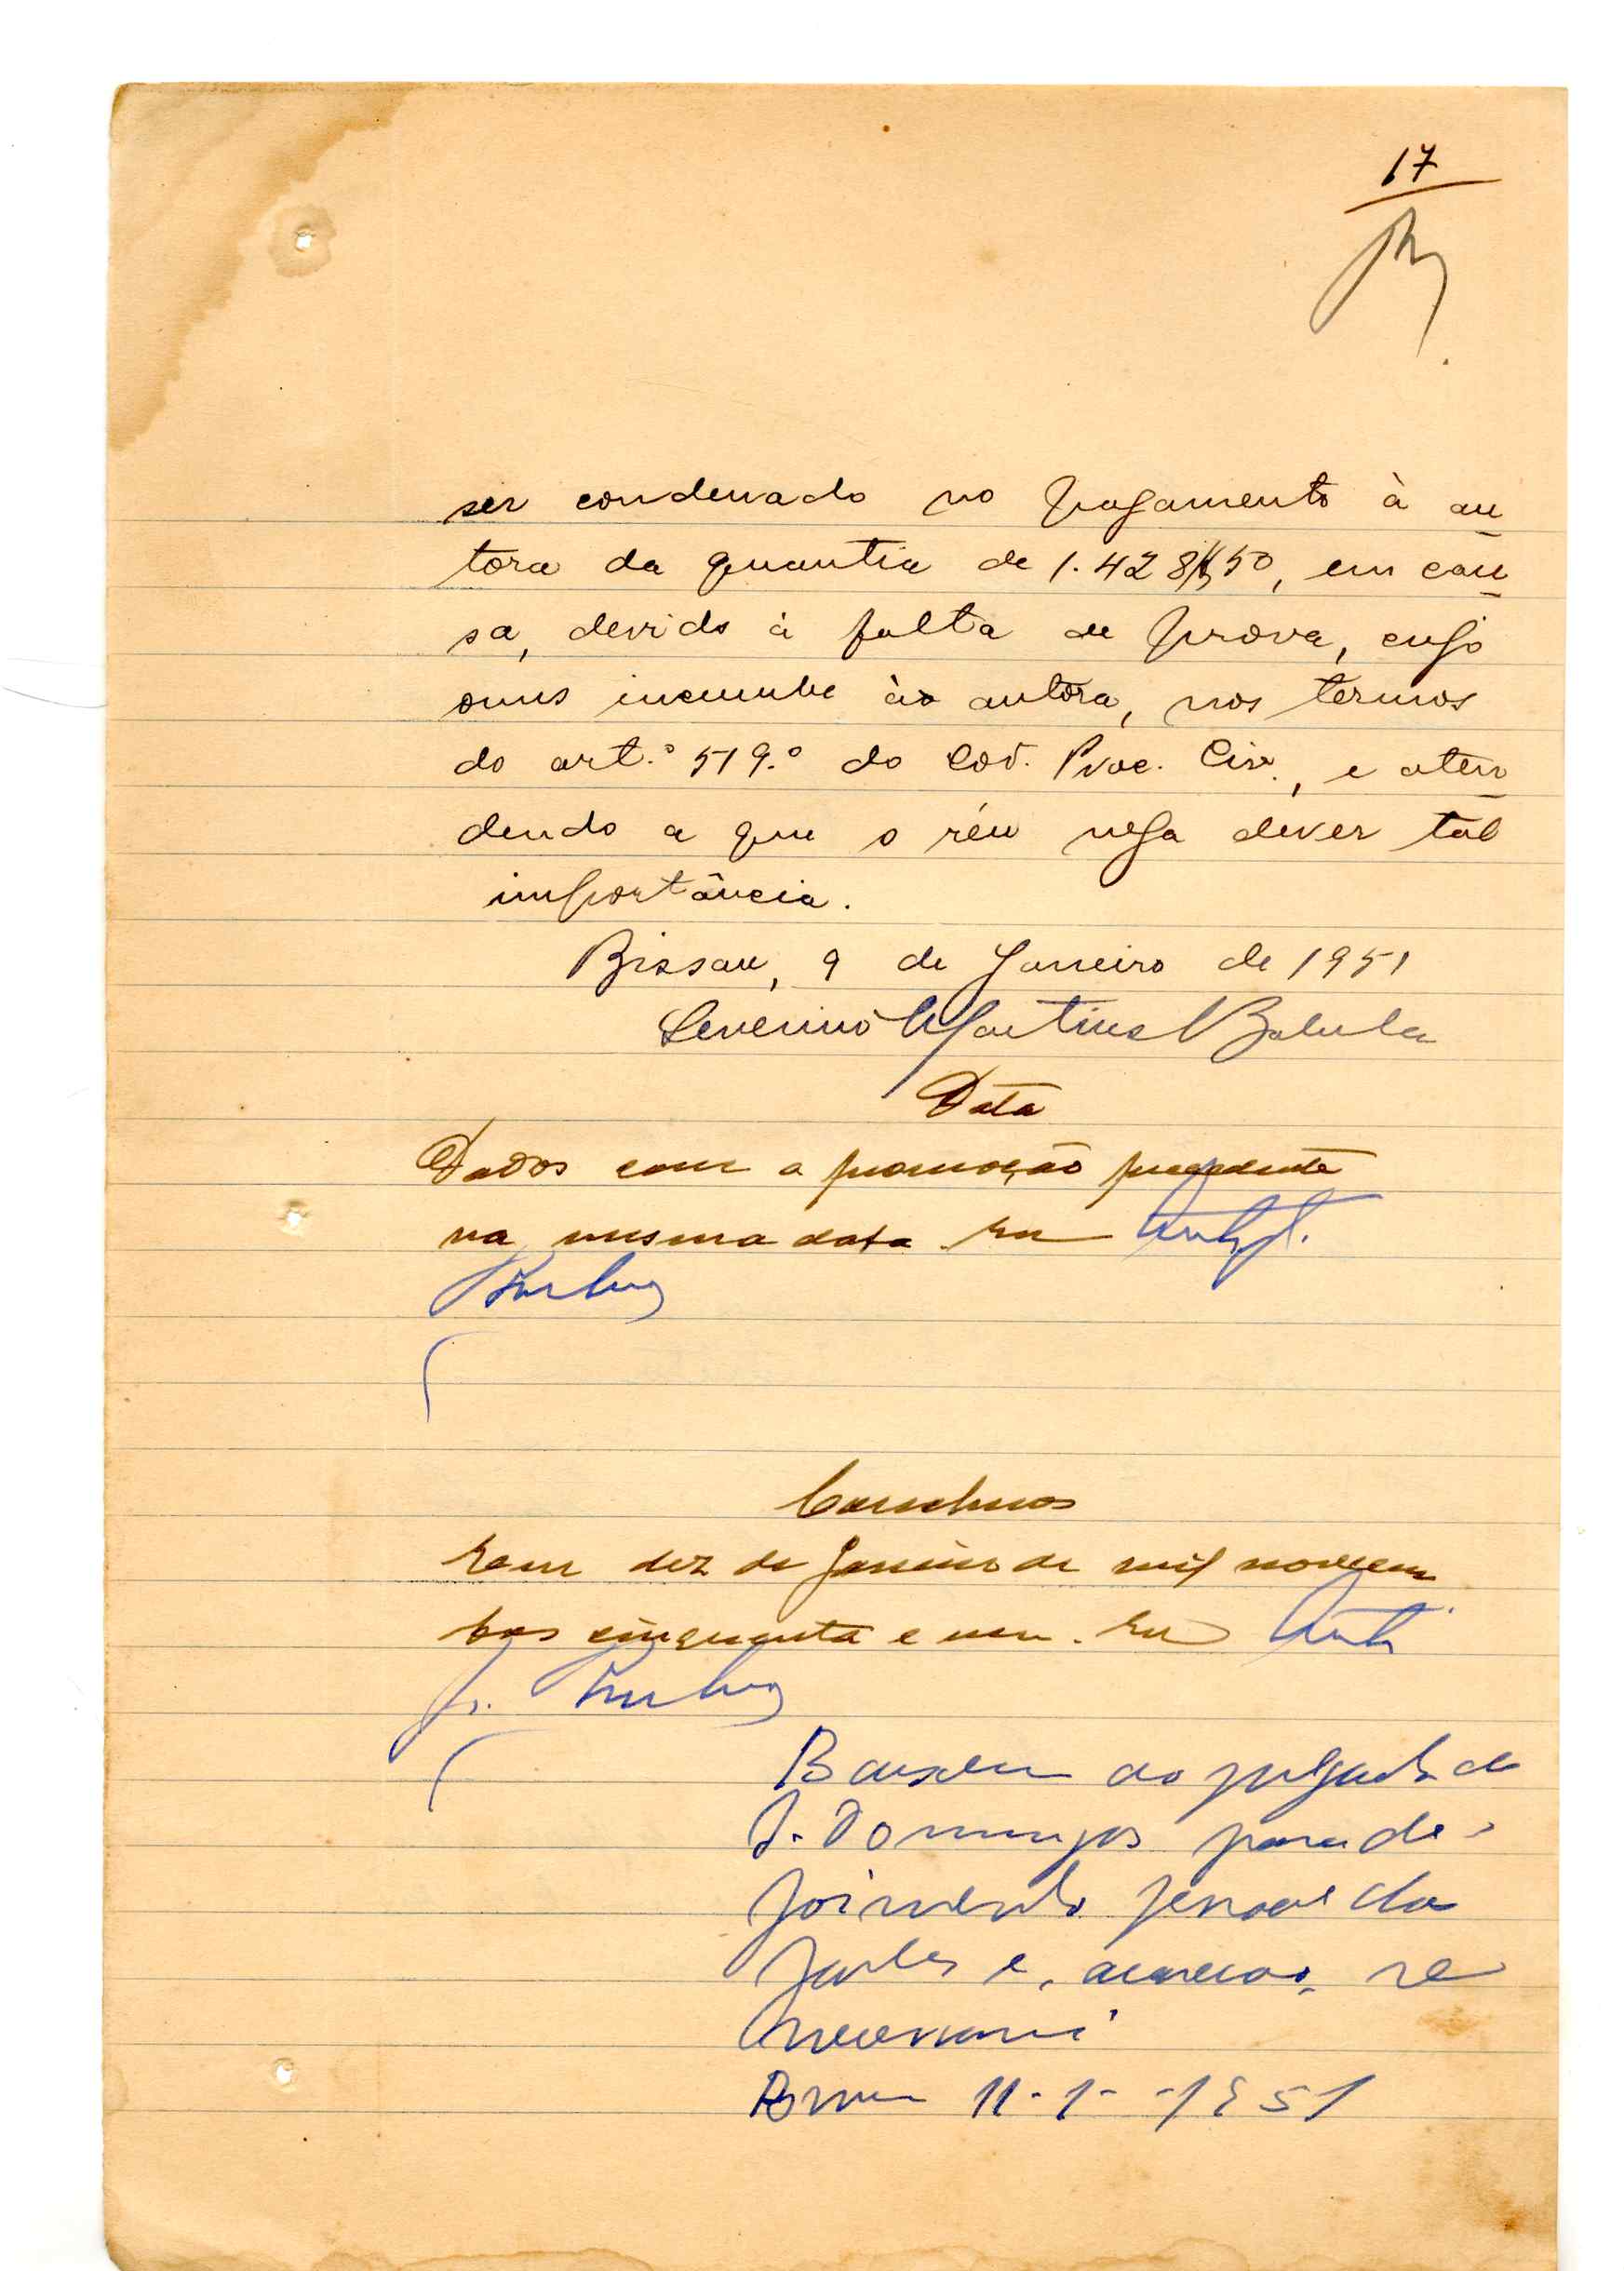 17
ser condenado no pagamento à au
tora da quantia de 1.428$50, em cau
sa, devido à falta de prova, cujo
onus incumbe à autora, nos termos
do art.º 519.º do Cod. Proc. Civ., e aten
dendo a que o réu nega dever tal
importância.
Bissau, 9 de Janeiro de 1951
Severino Martins
Data
Dados com a promoção precedente
na mesma data. Eu
Conclusos
Em dez de Janeiro de mil novecen
tos cinquenta e um. Eu
Baixem ao julgado de
S. Domingos para de-
poimento pessoal das
partes e, acareação, se
necessario
Bissau 11-1-1951